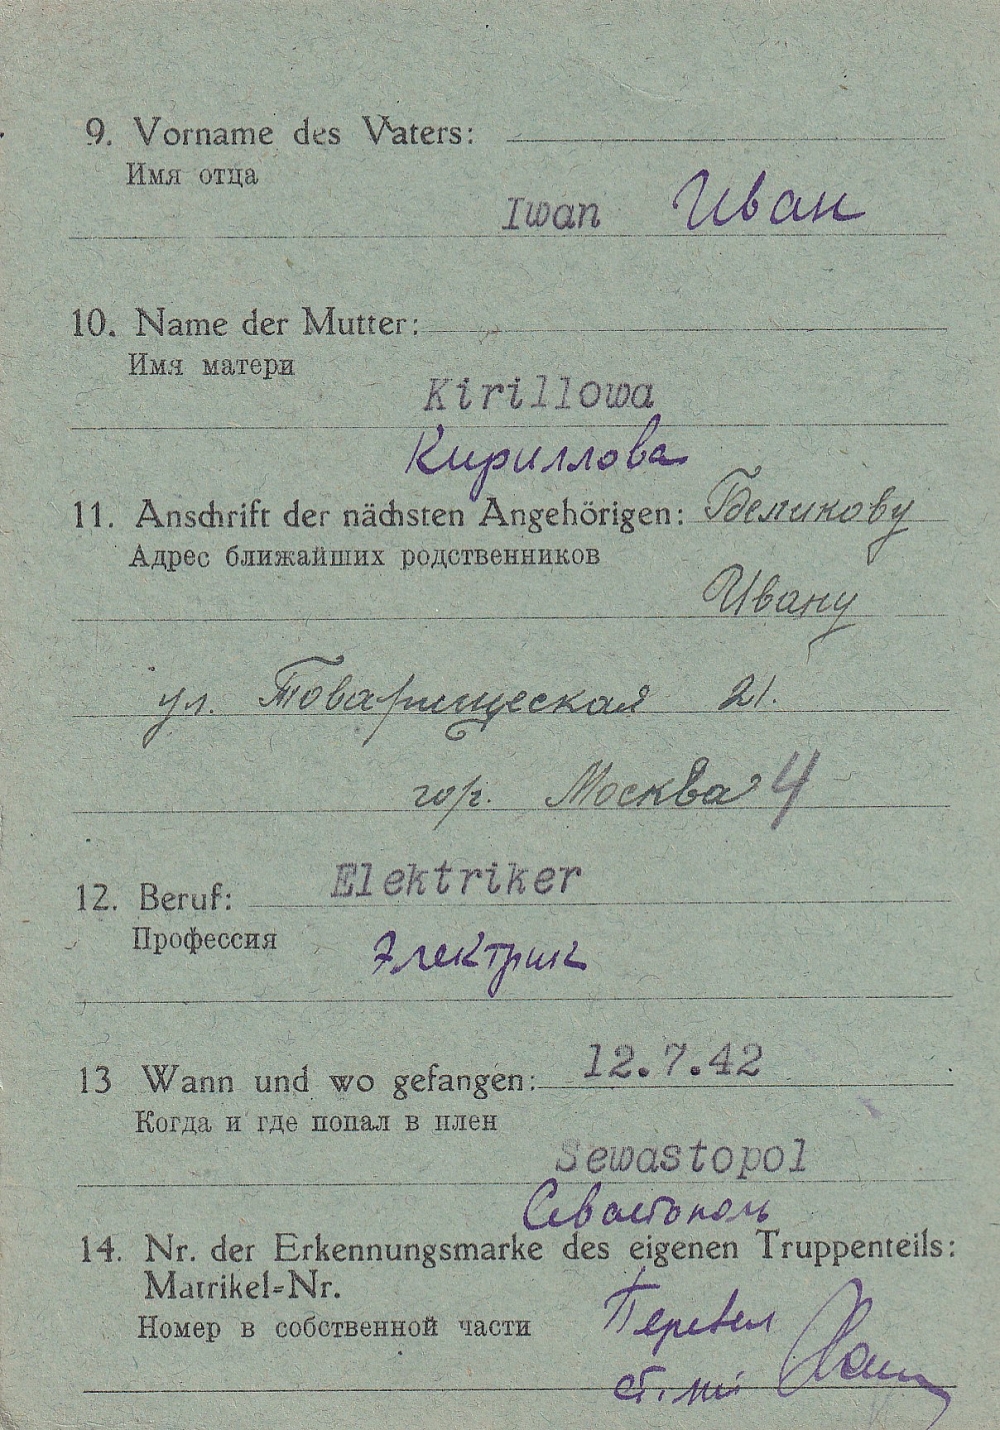 9. Vorname des Vaters:
Имя отца
Iwan Иван
10. Name der Mutter:
Имя матери
Kirillowa
Кириллова
11. Anschrift der nächsten Angehörigen: Беликову
Адрес ближайших родственников
Ивану
ул. Товарищеская 21.
гор. Москва 4
12. Beruf: Elektriker
Профессия
Электрик
13 Wann und wo gefangen: 12.7.42
Когда и где попал в плен
Sewastopol
Севастополь
14. Nr. der Erkennungsmarke des eigenen Truppenteils:
Matrikel-Nr.
Номер в собственной части
Перевел
ст.